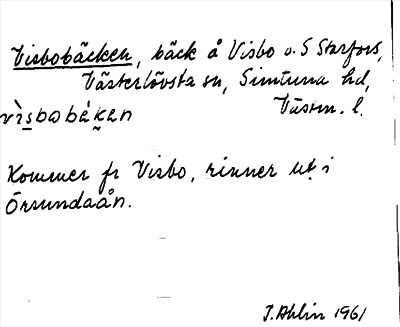 Visbobäcken, bäck å Visbo o. S Starfors,
Västerlövsta sn, Simtuna hd,
Västm. l.
vìsbobékan
Kommer fr Visbo, rinner ut i
Örsundaån.
J. Ahlin 1961